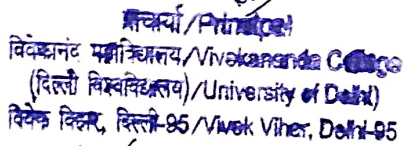 प्राचार्या/Principal
विवेकानंद महाविद्यालय/Vivekananda College
(दिल्ली विश्वविद्यालय)/University of Delhi)
विवेक विहार, दिल्ली-95/Vivek Viher, Delhi-95